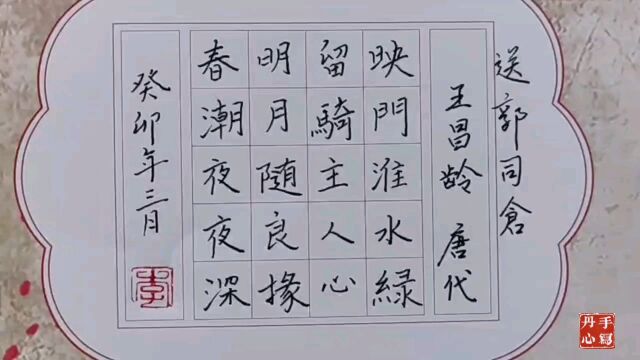 送郭司倉
王昌龄 唐代
映門淮水緑
留騎主人心
明月隨良掾
春潮夜夜深
癸卯年三月
手寫丹心